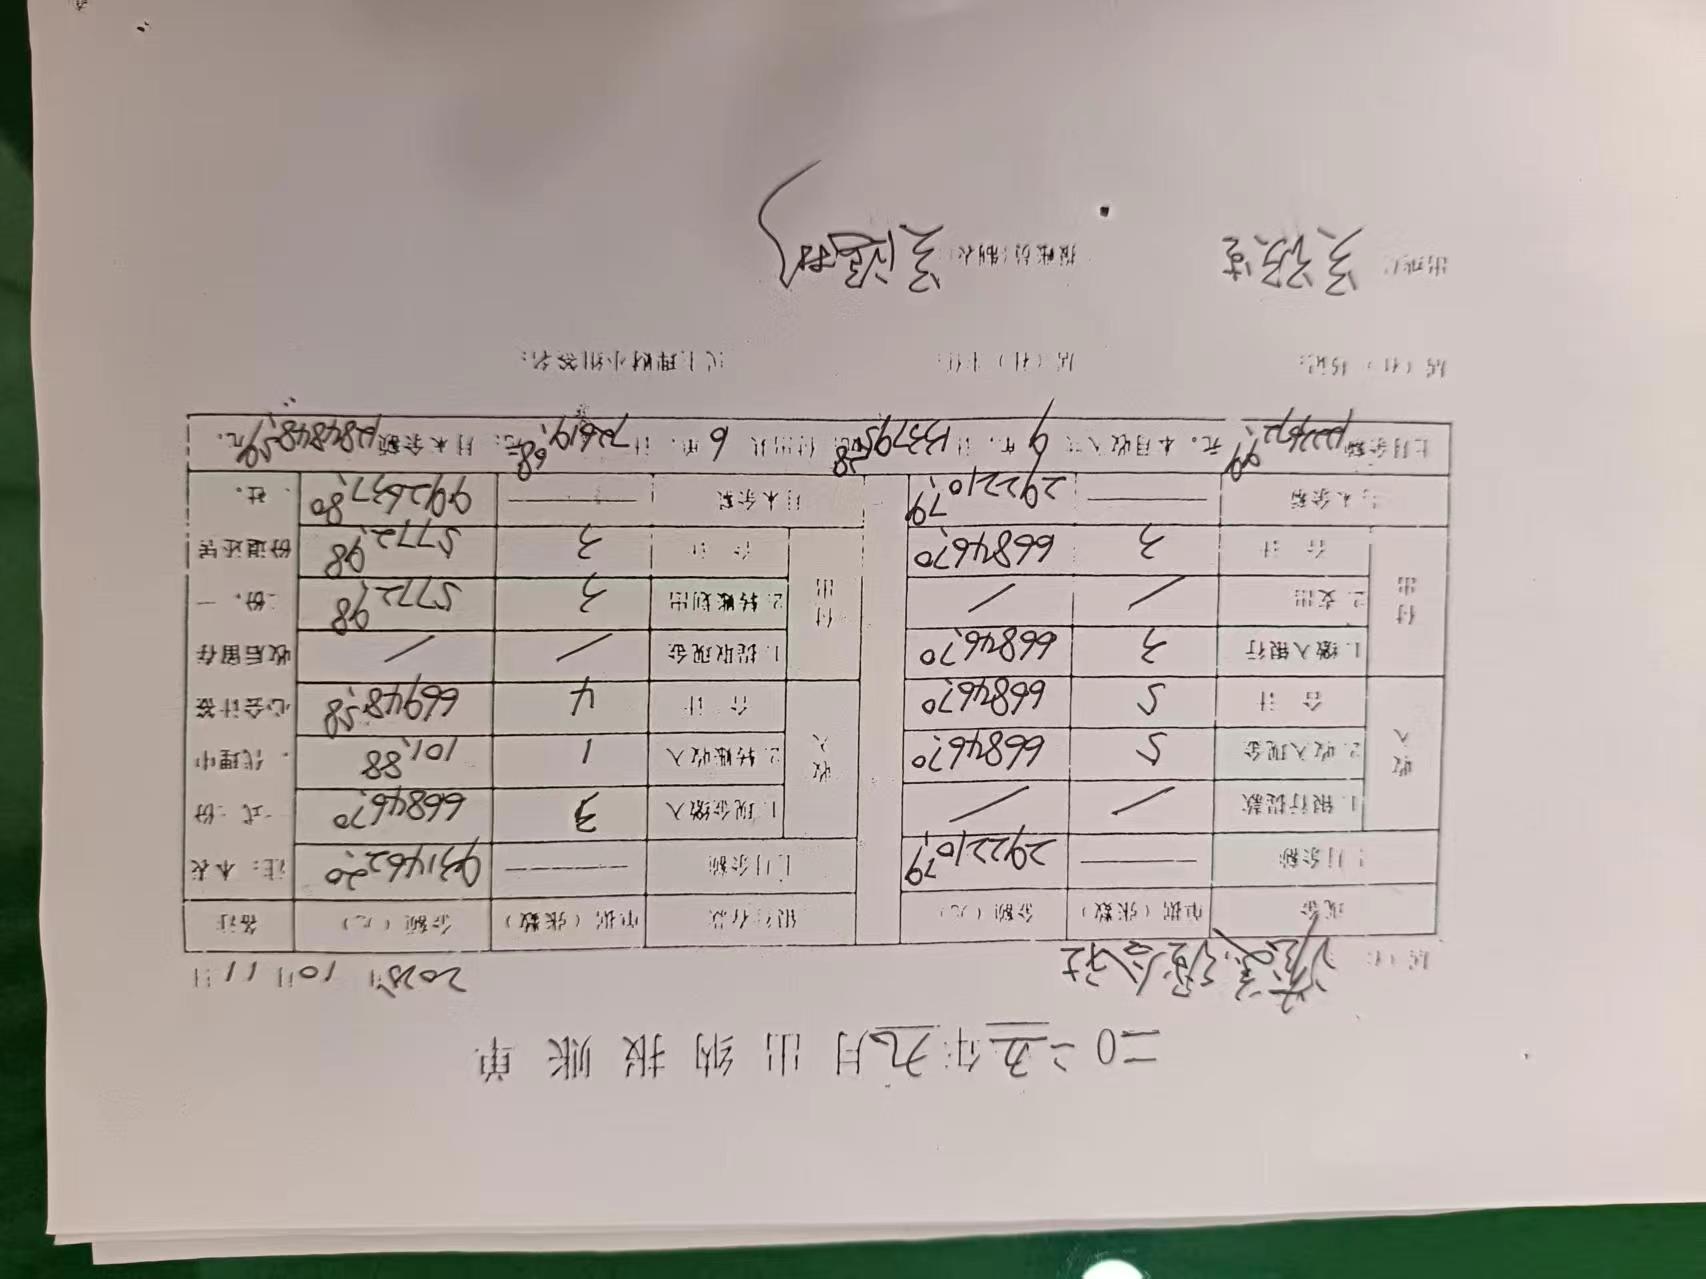 二〇二五年九月出纳报账单
居（社） 经合社 2025年10月11日
现金 单据（张数） 金额（元） 银行存款 单据（张数） 金额（元） 备注
上月余额 —— 292210.79 上月余额 —— 931462.20 注：本表
收入 1.银行提款 / / 收入 1.现金缴入 3 66846.70 一式二份
2.收入现金 5 66846.70 2.转账收入 1 101.88 ，代理中
合计 5 66846.70 合计 4 66948.58 心会计签
付出 1.缴入银行 3 66846.70 付出 1.提取现金 / / 收后留存
2.支出 / / 2.转账划出 3 5772.98 一份，一
合计 3 66846.70 合计 3 5772.98 份退还居
月末余额 —— 292210.79 月末余额 —— 992637.80 社。
上月余额1223672.99元。本月收入共9笔，计133795.28元；付出共6笔，计72619.68元；月末余额1284848.59元。
居（社）书记： 居（社）主任： 民主理财小组签名：
出纳： 报账员(制表)：